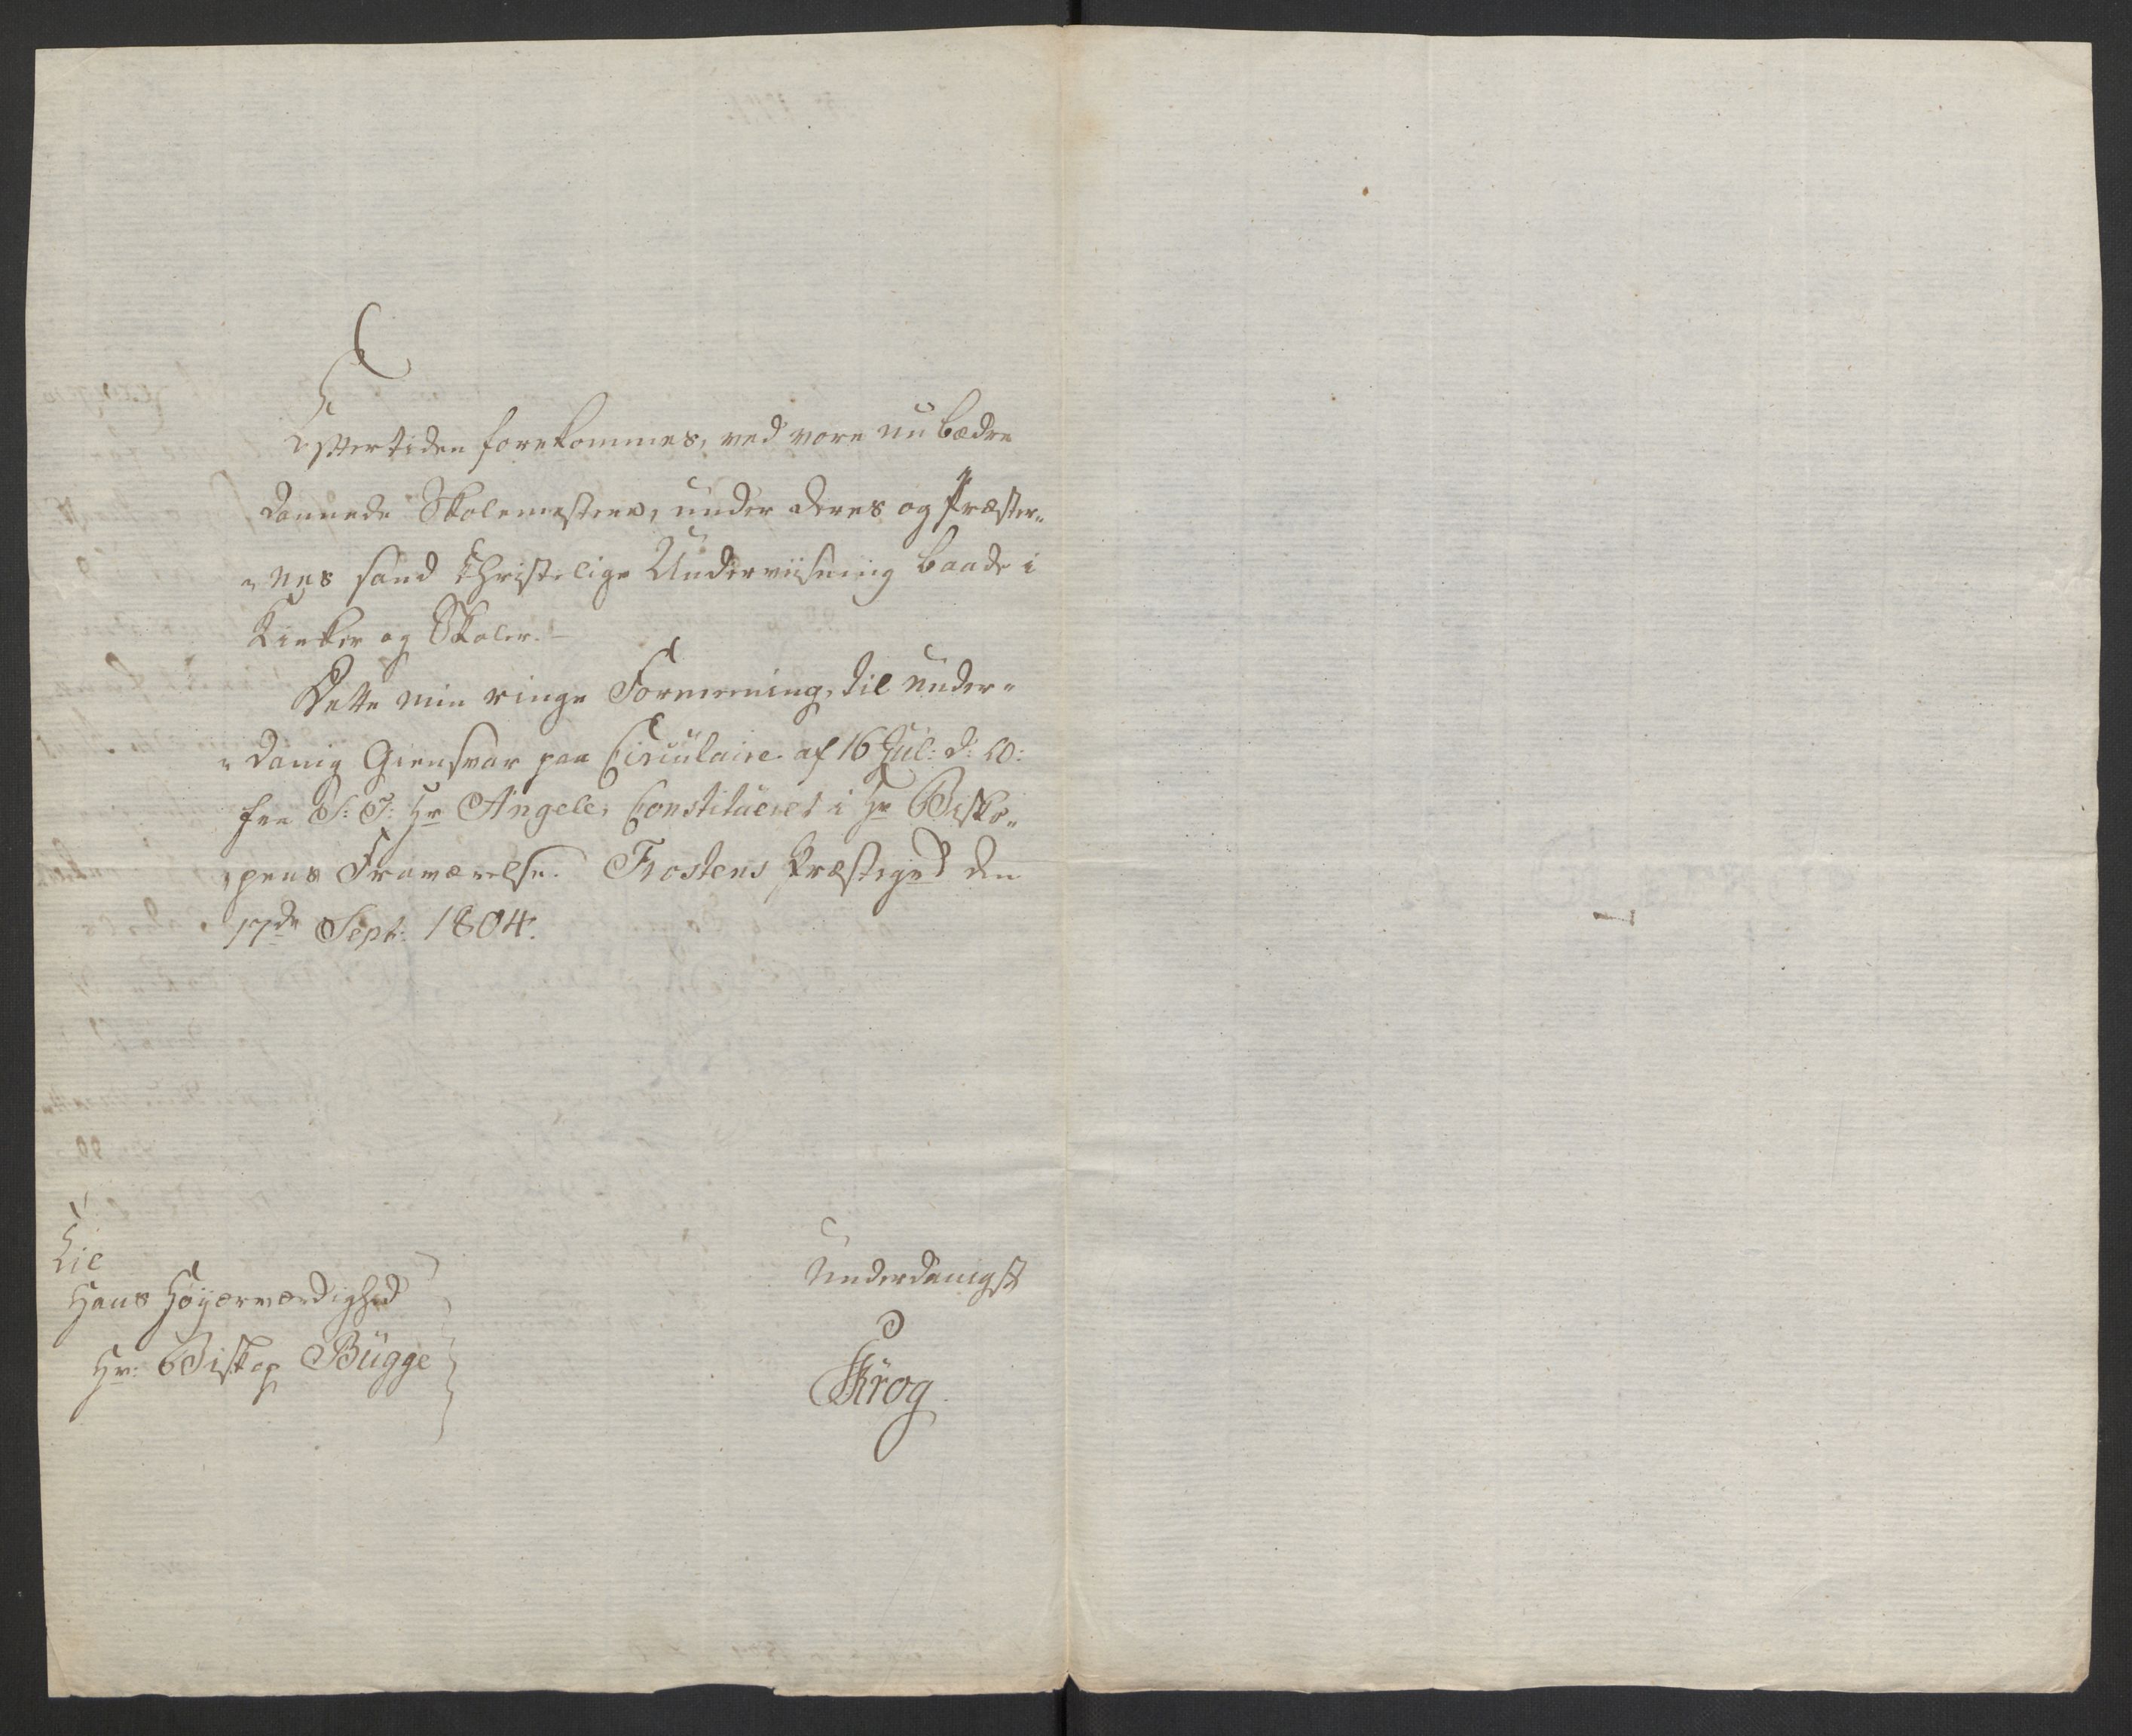 Eftertiden forekommes, ved vore nu bædre
dannede Skolemestere, under deres og Præster„
„nes sand Christelige Underviisning baade i
Kirker og Skoler. —
Dette min ringe Formening, til under„
„danig Giensvar paa Circulaire af 16 Jul: d: A:
fra S: T: Hr Angell, Constitueret i Hr Bisko„
„pens Fraværelse. Frostens Præstegrd den
17de Sept: 1804.
Til
Hans Høyærværdighed
Hr: Biskop Bugge
Underdanigst
Krog